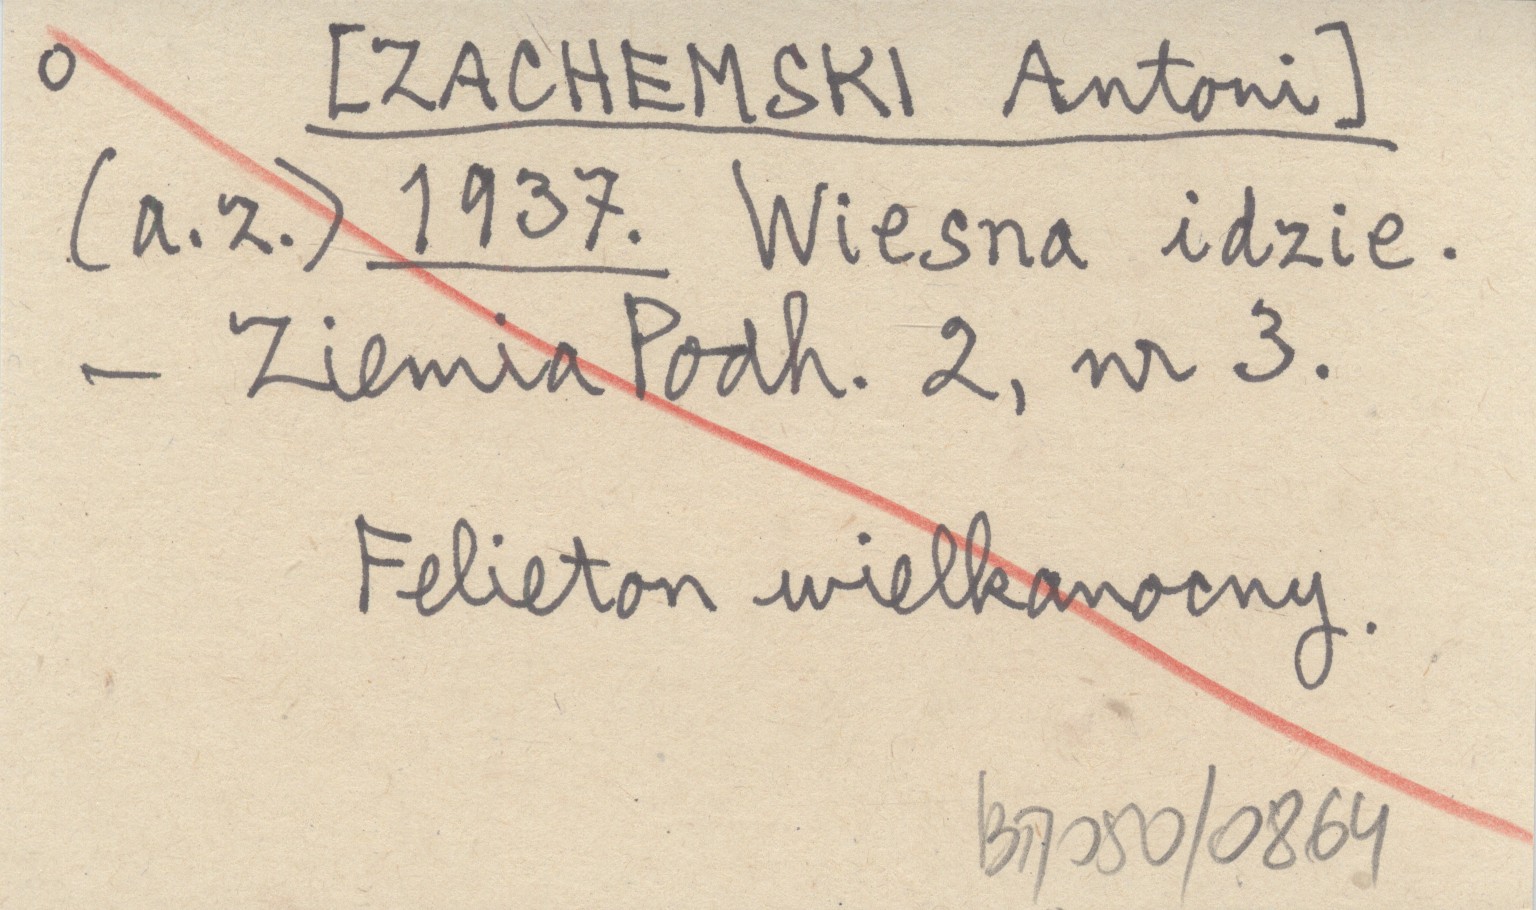 o [ZACHEMSKI Antoni]
(a.z.) 1937. Wiesna idzie.
– Ziemia Podh. 2, nr 3.
Felieton wielkanocny.